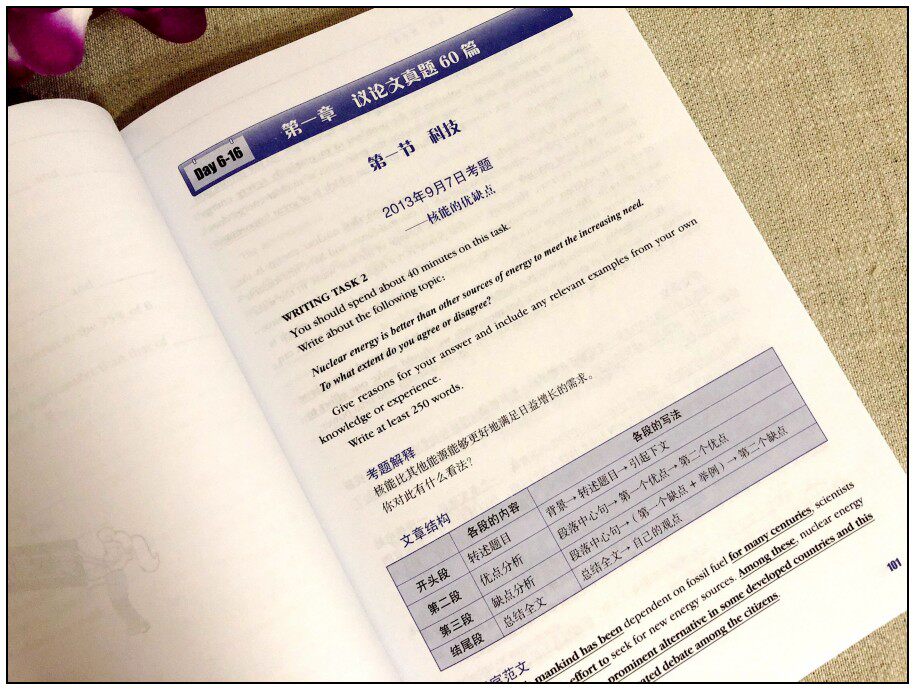 Day 6-16
第一章 议论文真题60篇
第一节 科技
2013年9月7日考题
——核能的优缺点
WRITING TASK 2
You should spend about 40 minutes on this task.
Write about the following topic:
Nuclear energy is better than other sources of energy to meet the increasing need.
To what extent do you agree or disagree?
Give reasons for your answer and include any relevant examples from your own
knowledge or experience.
Write at least 250 words.
考题解释
核能比其他能源能够更好地满足日益增长的需求。
你对此有什么看法?
文章结构
各段的内容 各段的写法
开头段 转述题目 背景→转述题目→引起下文
第二段 优点分析 段落中心句→第一个优点→第二个优点
第三段 缺点分析 段落中心句→(第一个缺点+举例)→第二个缺点
结尾段 总结全文 总结全文→自己的观点
范文
mankind has been dependent on fossil fuel for many centuries, scientists
effort to seek for new energy sources. Among these, nuclear energy
prominent alternative in some developed countries and this
debate among the citizens.
101